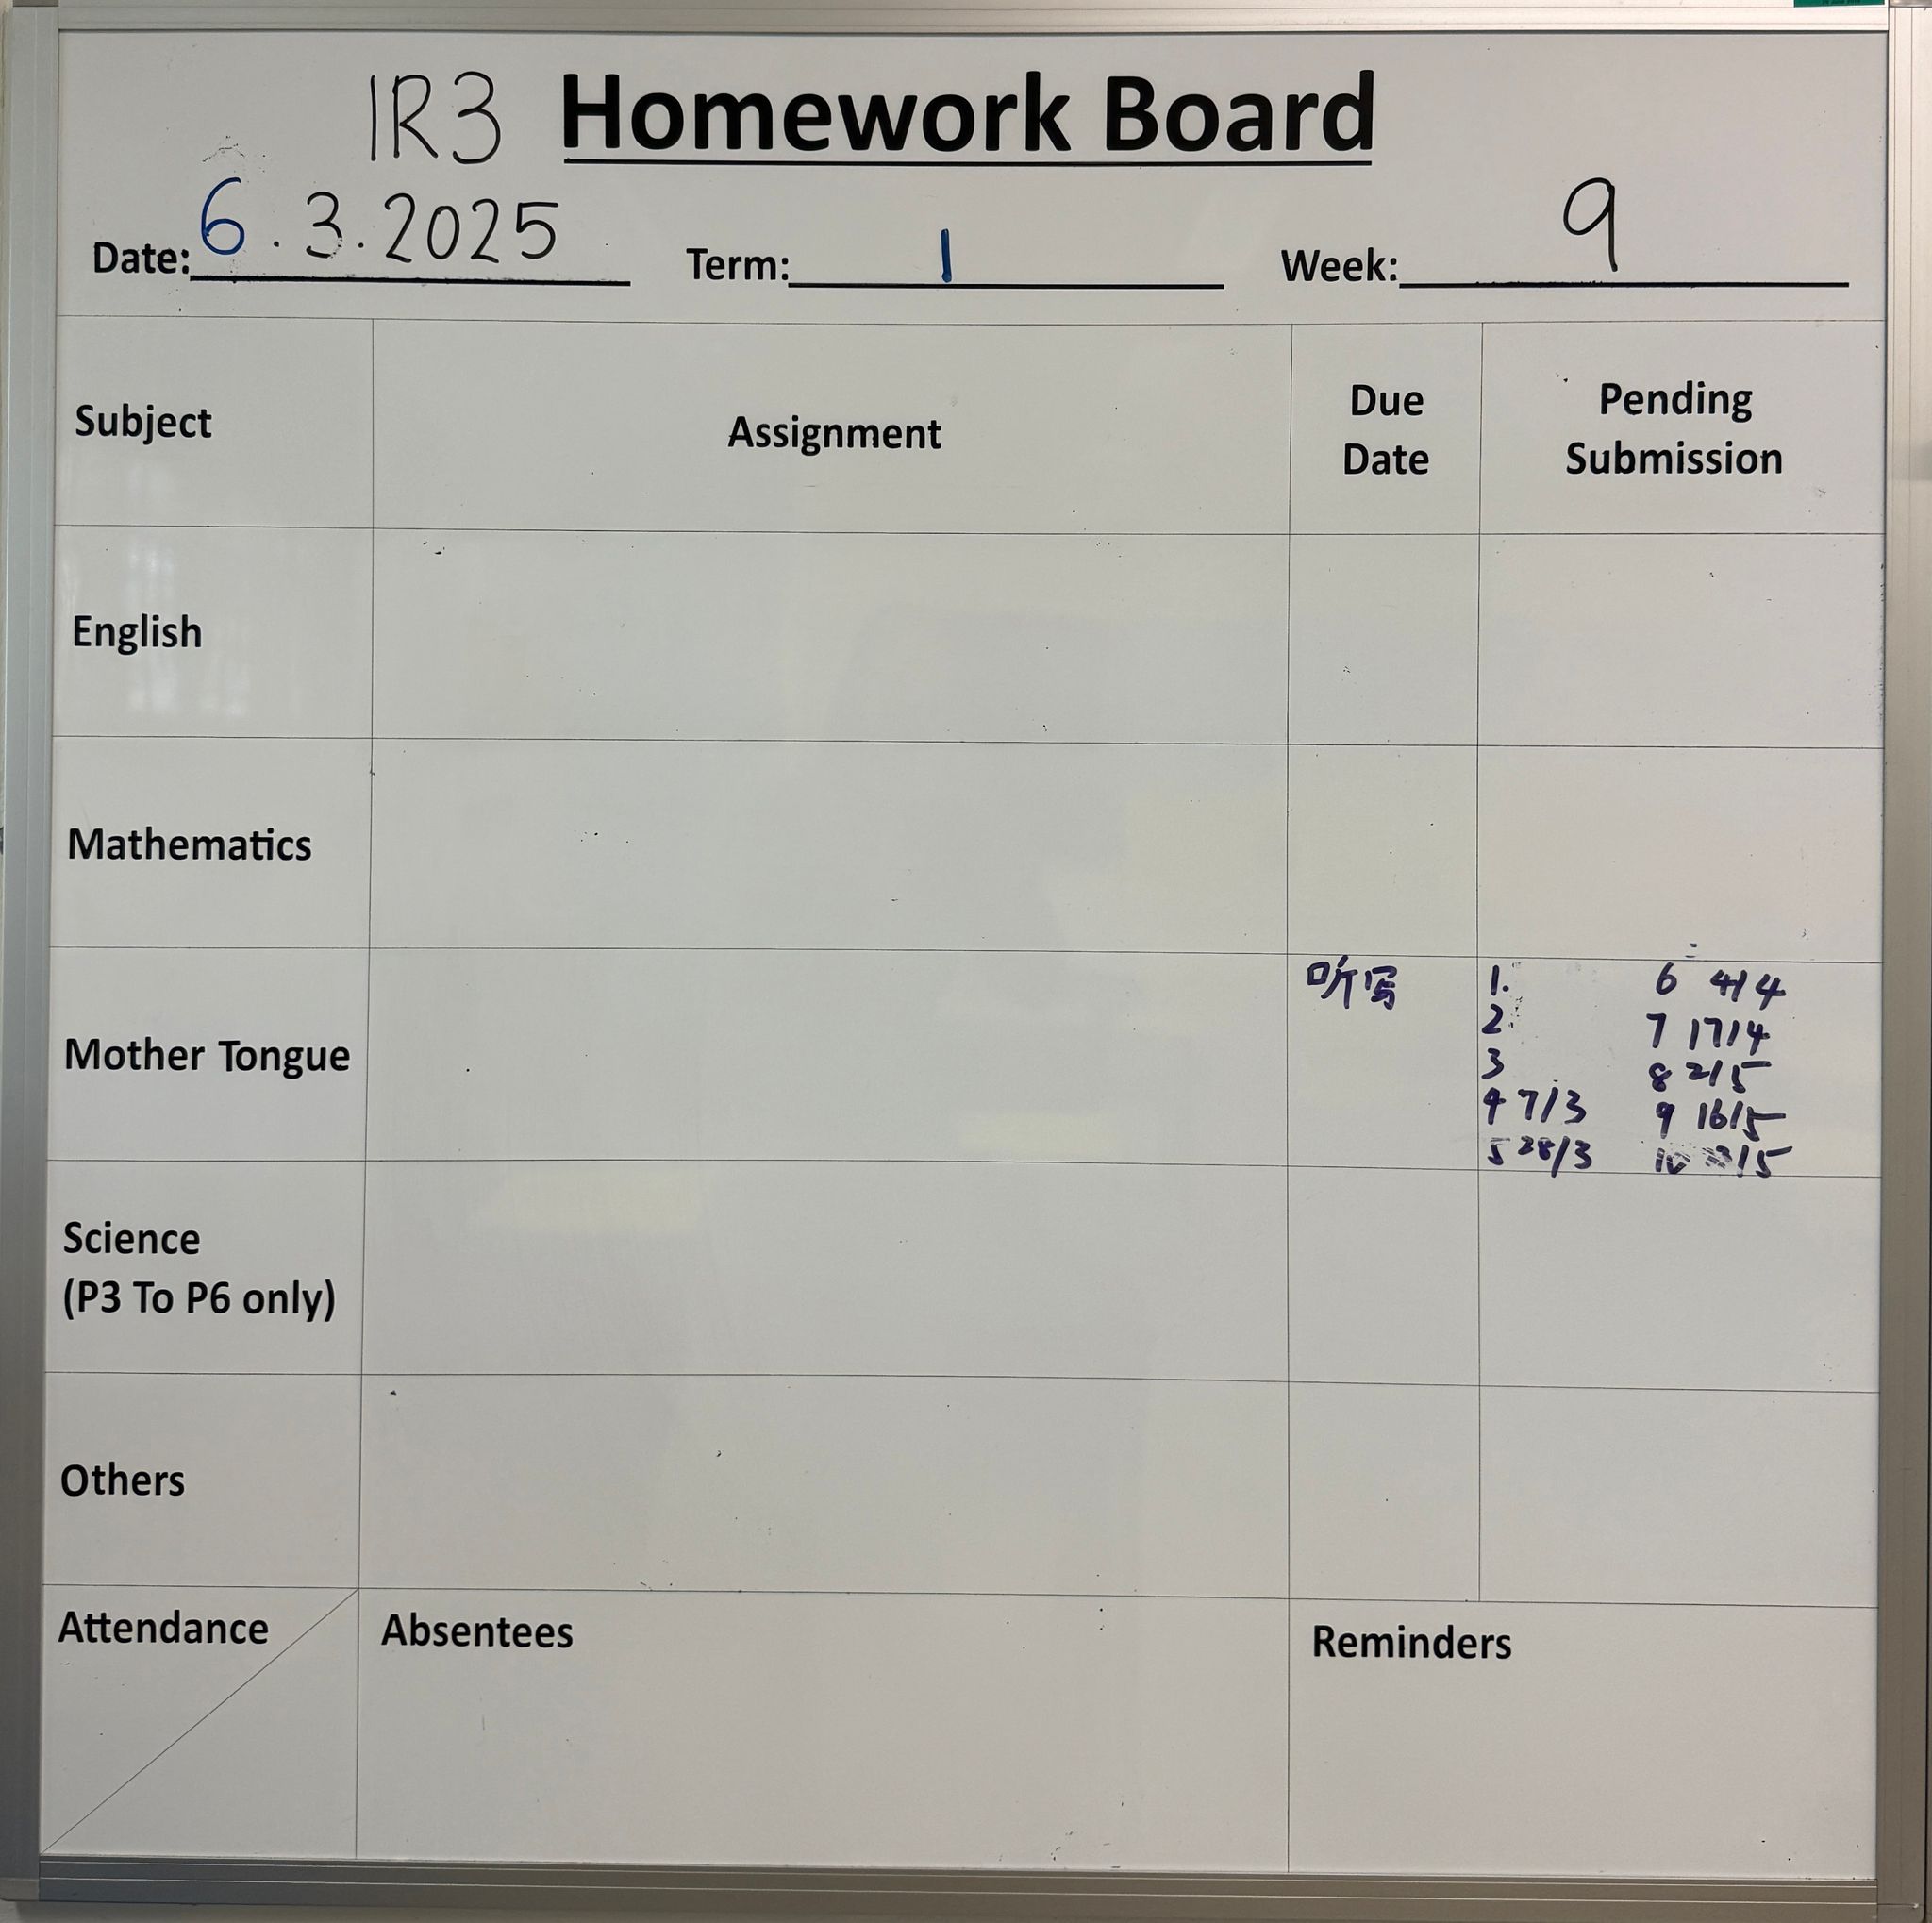 1R3 Homework Board
Date: 6.3.2025 Term: 1 Week: 9
Subject Assignment Due Date Pending Submission
English
Mathematics
Mother Tongue
听写
1. 6 4/4
2. 7 17/4
3 8 2/5
4 7/3 9 16/5
5 28/3 10 /5
Science
(P3 To P6 only)
Others
Attendance Absentees Reminders